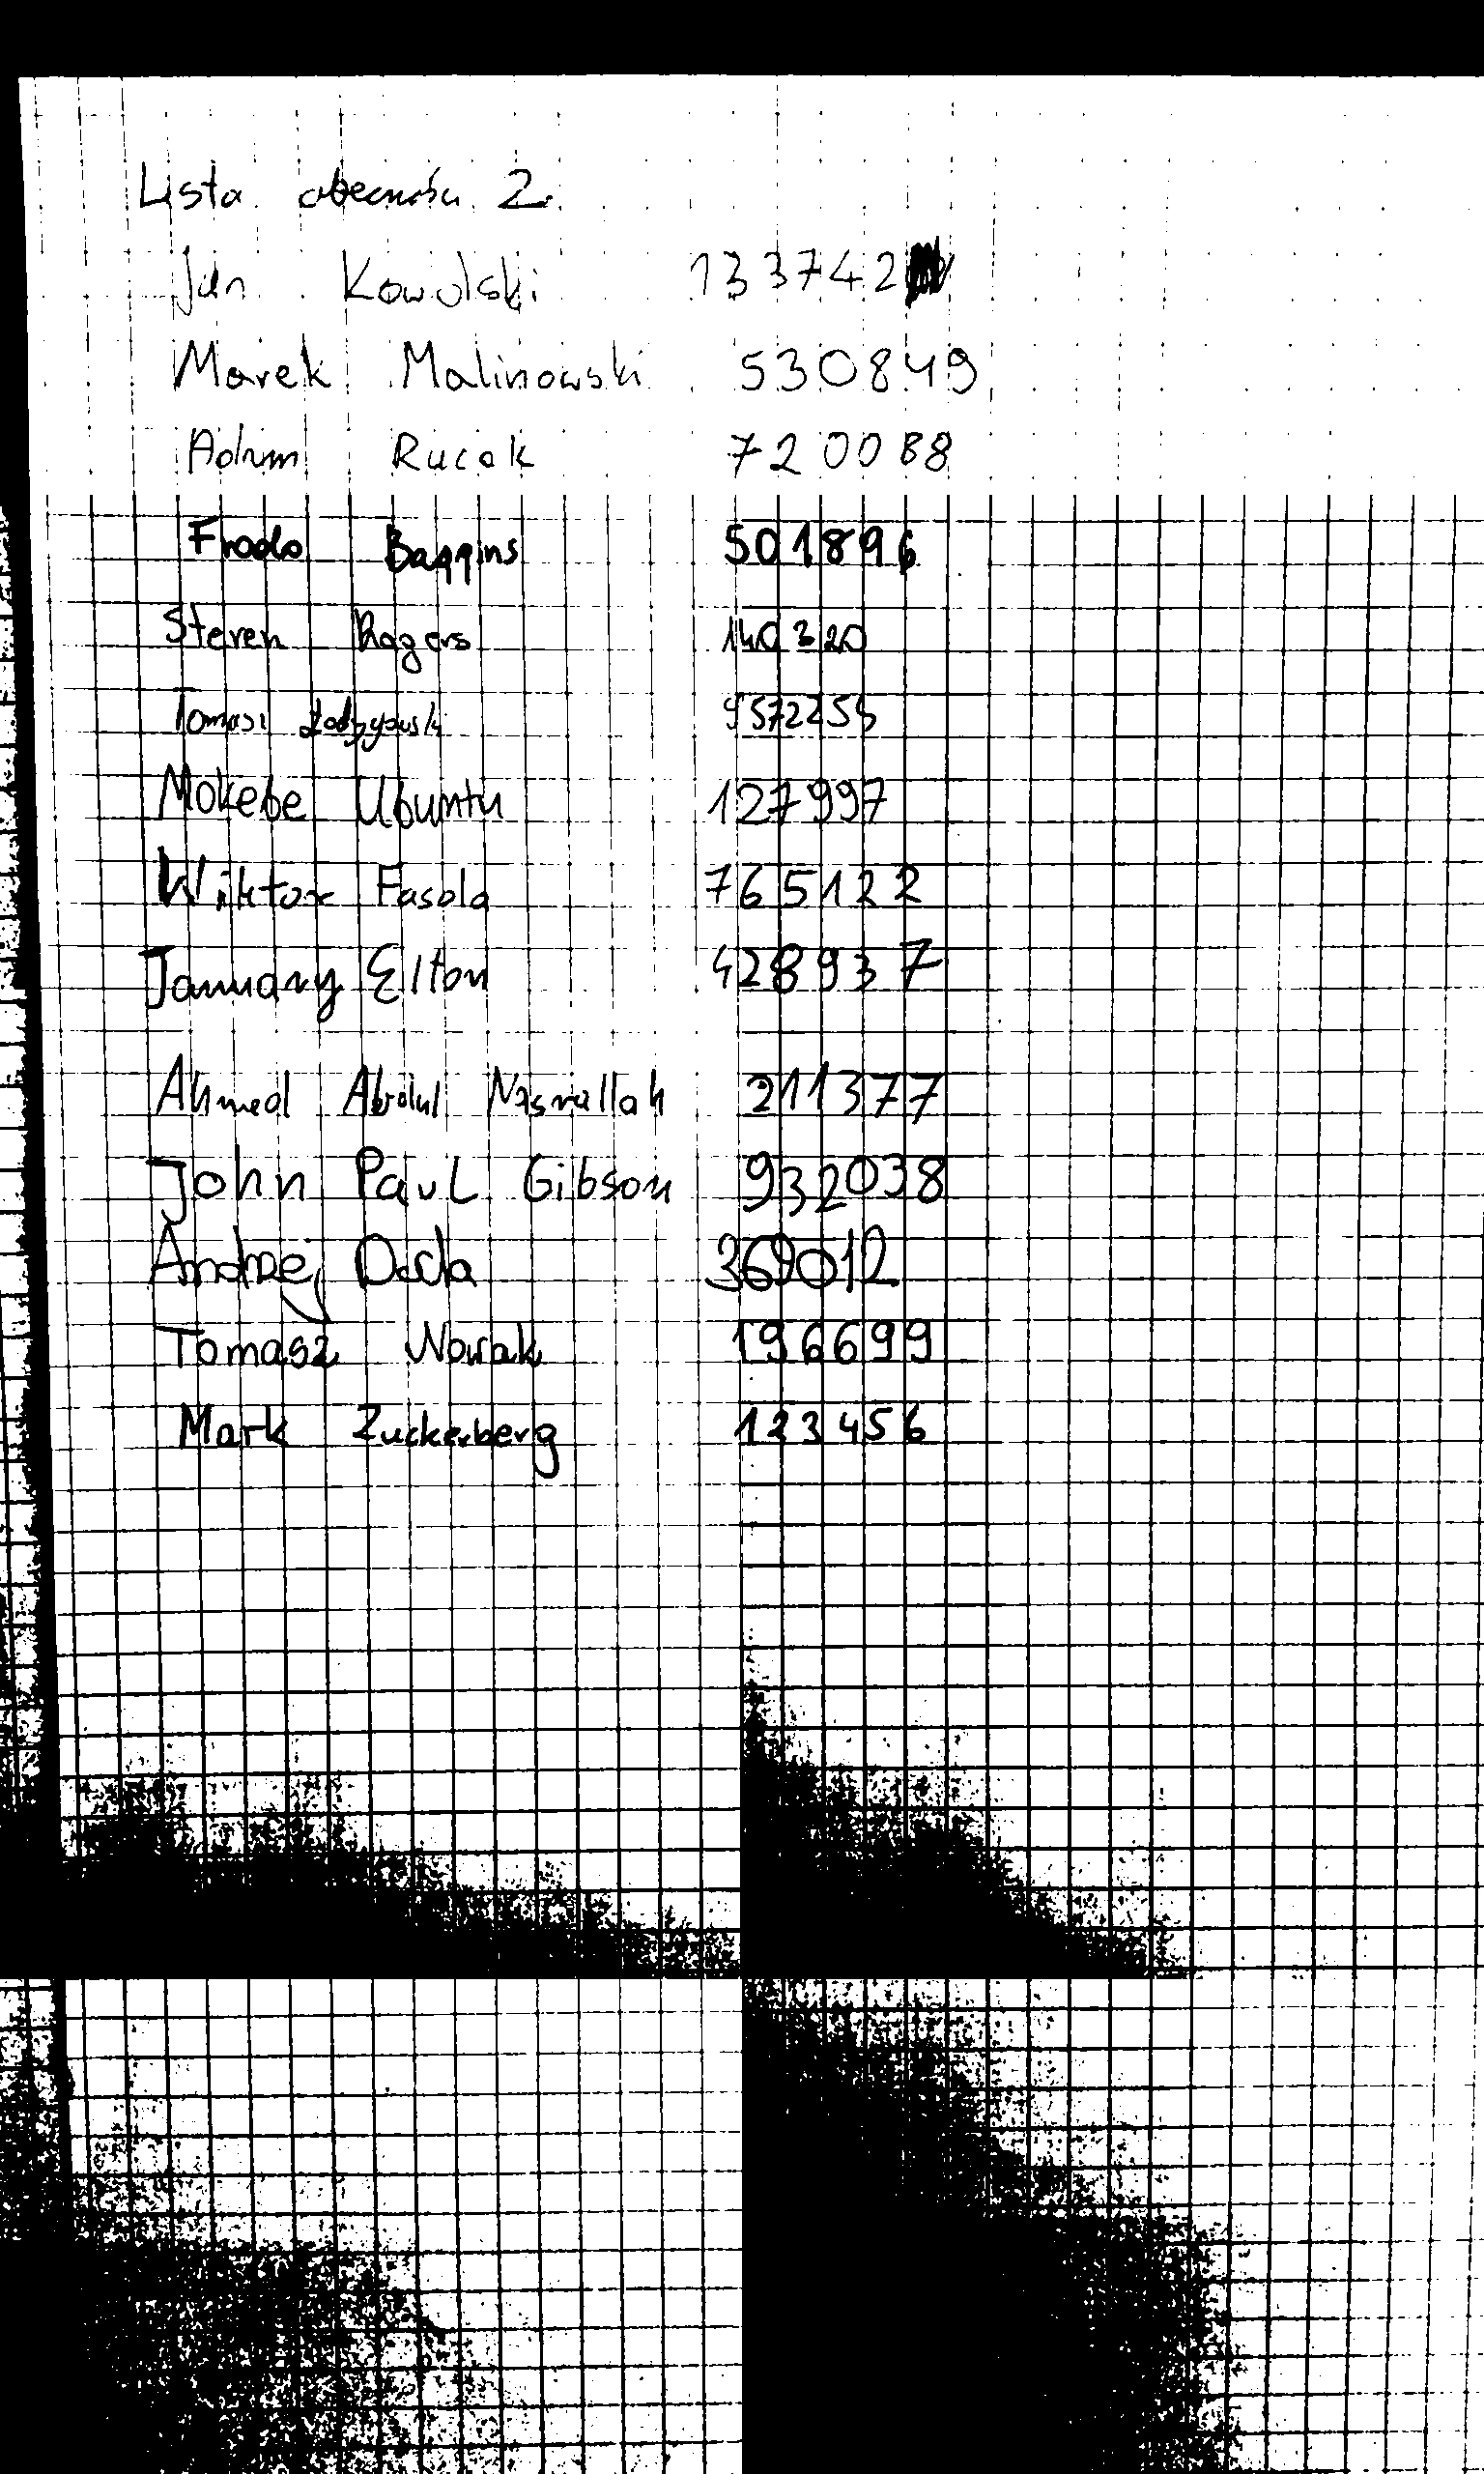 Lista obecności 2.
Jan Kowalski 133742
Marek Malinowski 530849
Adam Rucak 720088
Frodo Baggins 501896
Steven Rogers 140320
Tomasz
Mokebe Ubuntu 127997
Wiktor Fasola 765122
January Elton 428937
Ahmed Abdul Nasrallah 211377
John Paul Gibson 932038
Andrzej Duda 369012
Tomasz Nowak 196699
Mark Zuckerberg 123456